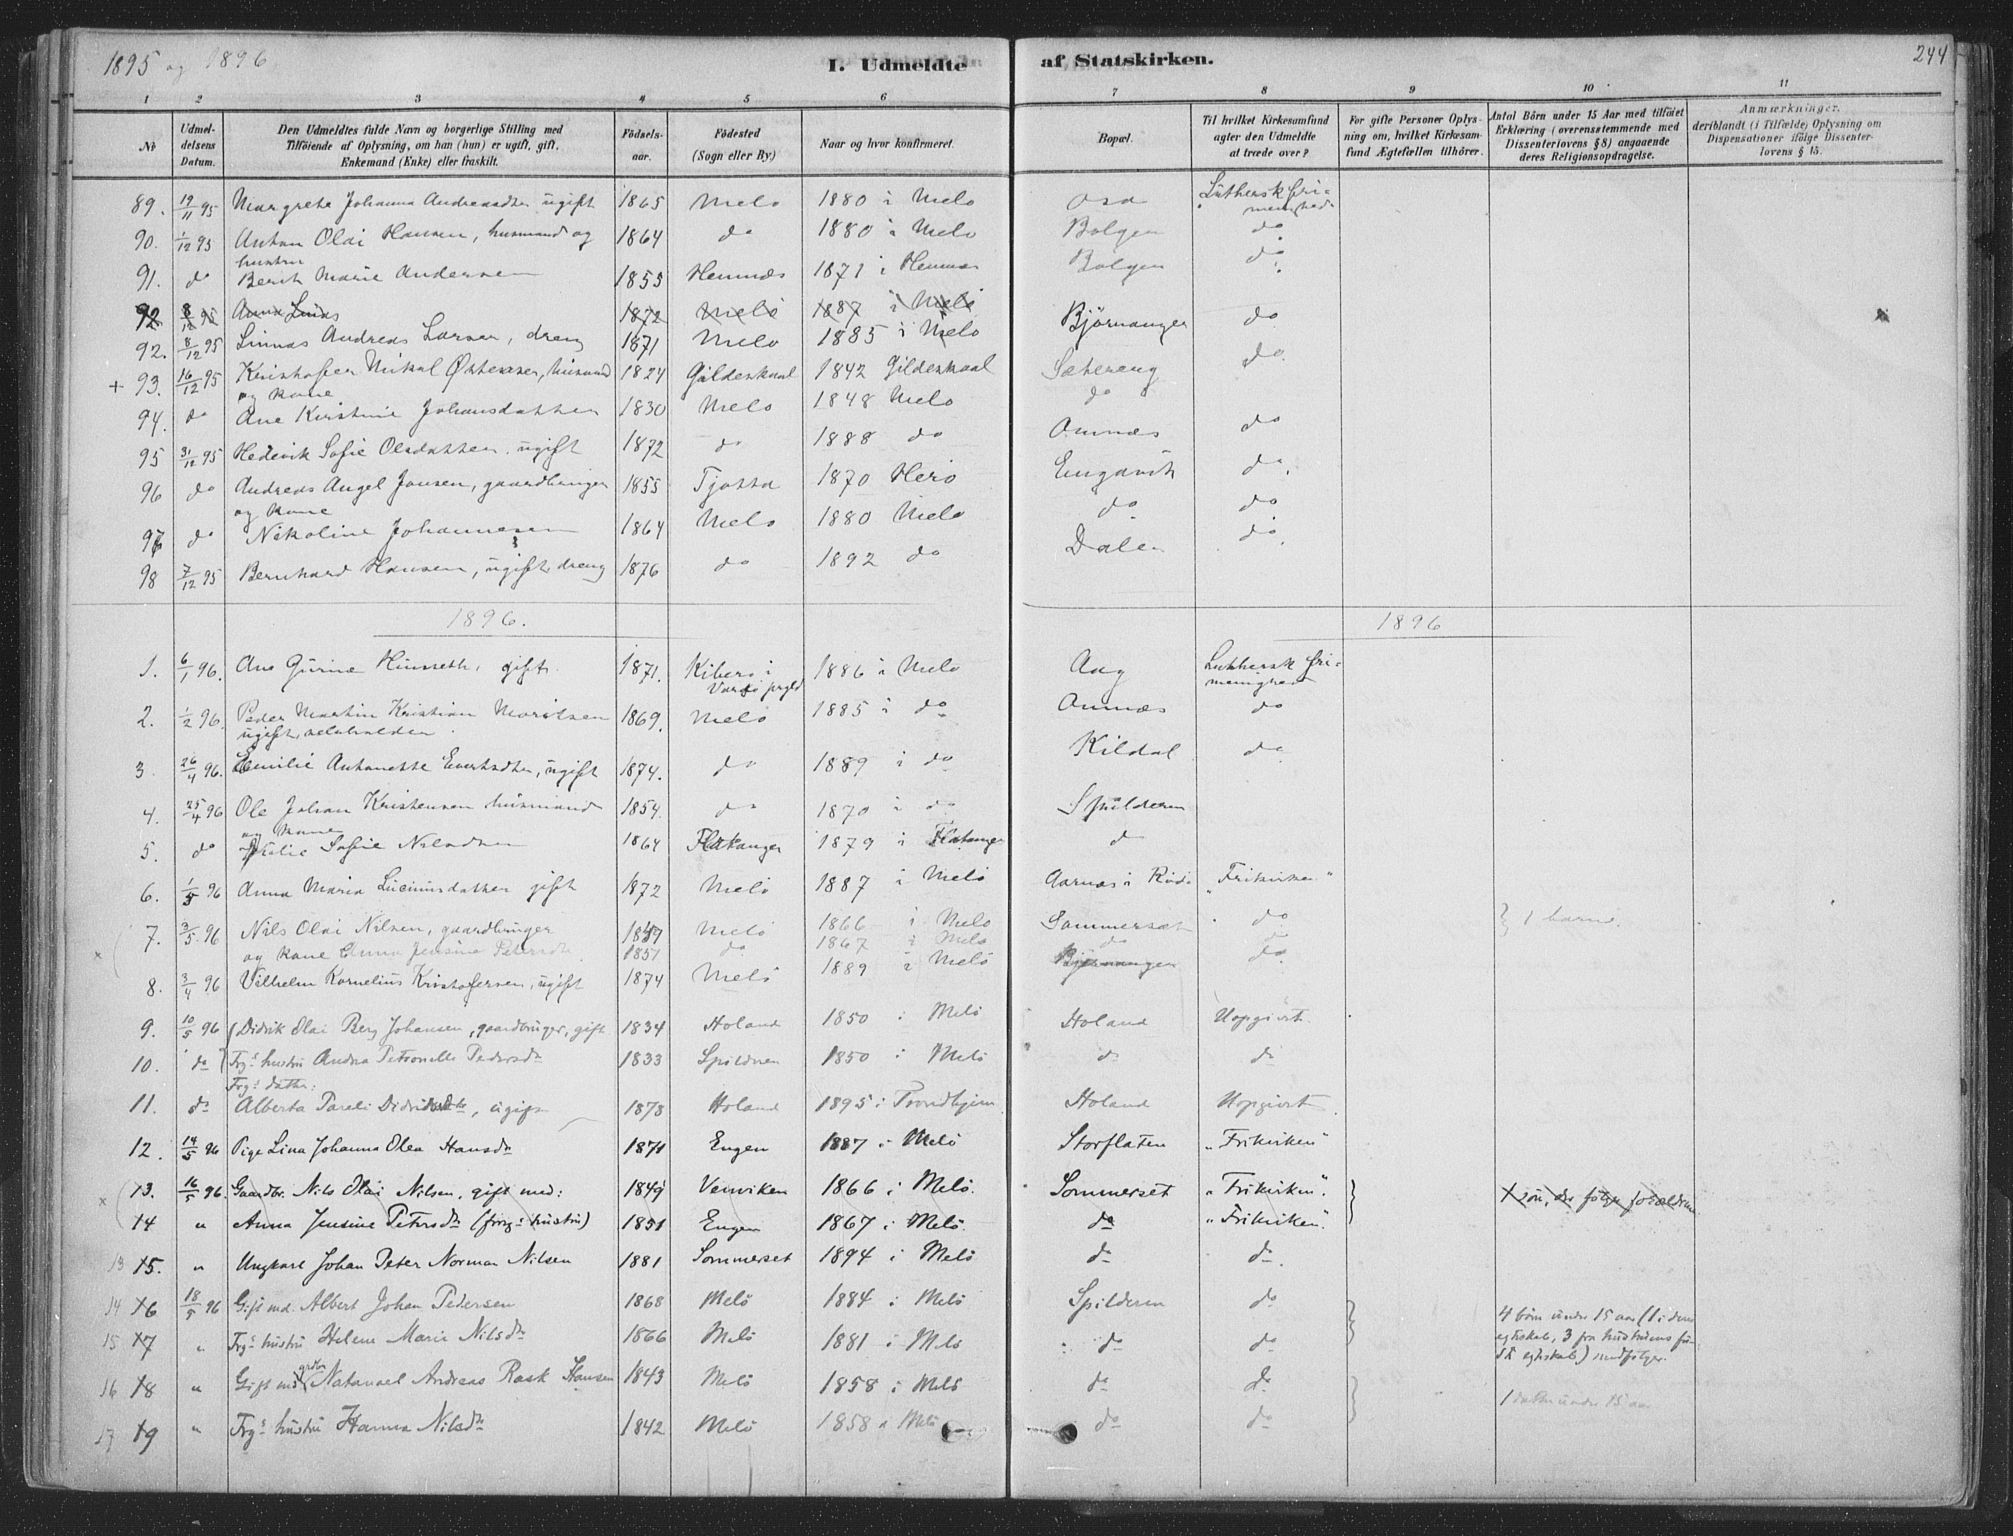 1895 og 1896
I. Udmeldte af Statskirken.
244
1 2 3 4 5 6 7 8 9 10 11
No
Udmeldelsens Datum.
Den Udmeldtes fulde Navn og borgerlige Stilling med
Tilføiende af Oplysning, om han (hun) er ugift, gift,
Enkemand (Enke) eller fraskilt.
Fødselsaar.
Fødested
(Sogn eller By)
Naar og hvor konfirmeret.
Bopæl.
Til hvilket Kirkesamfund
agter den Udmeldte
at træde over?
For gifte Personer Oplysning om, hvilket Kirkesamfund Ægtefællen tilhører.
Antal Börn under 15 Aar med tilføiet
Erklæring (overensstemmende med
Dissenterlovens § 8) angaaende
deres Religionsopdragelse.
Anmærkninger,
deriblandt (i Tilfælde) Oplysning om
Dispensationer ifölge Dissenterlovens § 15.
89. 19/11 95 Margrete Johanna Andreasdtr ugift 1865 Melø 1880 i Melø Osa Luthersk frimenighed
90. 1/12 95 Anton Olai Hansen, husmand og 1864 do 1880 i Melø Bolgen do
hustru
91. do Berit Marie Andersen 1853 Hemnæs 1871 i Hemnæs Bolgen do
92 8/12 95 Anna Linas 1872 Melö 1887 i Melö
92. 8/12 95 Linnas Andreas Larsen, dreng 1871 Melø 1885 i Melø Bjørnanger do
+ 93. 16/12 95 Kristoffer Nikol Østensen, husmand 1824 Gildeskaal 1842 Gildeskaal Sætereng do
og kone
94. do Ane Kirstine Johansdatter 1830 Melø 1848 Melø do
95 31/12 95 Hedevik Sofie Olsdatter, ugift 1872 do 1888 do Omnæs do
96 do Andreas Angel Jensen, gaardbruger 1855 Tjøtta 1870 Herø Engavik do
og kone
97 do Nikoline Johannesen 1864 Melø 1880 Melø do do
98 7/12 95 Bernhard Hansen, ugift dreng 1876 do 1892 do Dalen do
1896. 1896
1. 6/1 96. Ane Gurine gift 1871. Kiberg i Vardø prgld 1886 i Melø Aag Luthersk frimenighed
2. 1/2 96. Peder Martin Kristian Moritsen 1869. Melö 1885 i do Omnæs do
ugift,
3. 26/4 96. Emilie Antonette Evertsdtr, ugift 1874. do 1889 i do Kildal do
4. 25/4 96 Ole Johan Kristensen husmand 1854. do 1870 i do Spilderen
og kone
5. do Sofie Nilsdtr 1864 Flatanger 1879 i Flatanger do
6. 1/5 96 Anna Maria Luciusdatter gift 1872 Melö 1887 i Melö Aarnæs i Rödö "Frikirken"
7. 3/5 96 Nils Olai Nilsen, gaardbruger 1849 Melö 1866 i Melö Sommerset do 1 barn.
og kone Anna Jensine Petersdtr 1851 do 1867 i Melö do do
8. 3/4 96 Vilhelm Kornelius Kristofersen, ugift 1874 Melö 1889 i Melö Bjørnangen do
9. 10/5 96 Didrik Olai Berg Johansen, gaardbruger, gift 1834 Holand 1850 i Melö Holand Uopgivet.
10. do Frgs hustru Andrea Petronelle Pedersdtr 1833 Spildren 1850 i Melö do do
Frgs datter:
11. do Alberta Pareli Didriksdtr, ugift 1878 Holand 1895 i Trondhjem Holand Uopgivet
12. 14/5 96 Pige Lina Johanna Olea Hansdtr 1871 Engen 1887 i Melö Storflaten "Frikirken"
13. 16/5 96. Gaardbr. Nils Olai Nilsen, gift med: 1849 Venviken 1866 i Melö. Sommerset "Frikirken". 1 sön, der fölger forældrene
14 " Anna Jensine Petersdtr (forrigs hustru) 1851 Engen 1867 i Melö. do "Frikirken".
13 15. " Ungkarl Johan Peter Norman Nilsen 1881 Sommerset 1894 i Melö do do.
14 16 18/5 96 Gift md. Albert Johan Pedersen 1868 Melö 1884 i Melö Spilderen do 4 börn under 15 aar (1 i dette
15 17 " Frgs hustru Helene Marie Nilsdtr 1866 Melö 1881 i Melö do do egteskab, 3 fra hustruens før-
ste egteskab) medfölger.
16 18 " Gift md grdbr Natanael Andreas Rask Hansen 1843 Melö 1858 i Melö do do 1 datter under 15 aar
17 19 " Frgs hustru Hanna Nilsdtr 1842 Melö 1858 i Melö do do